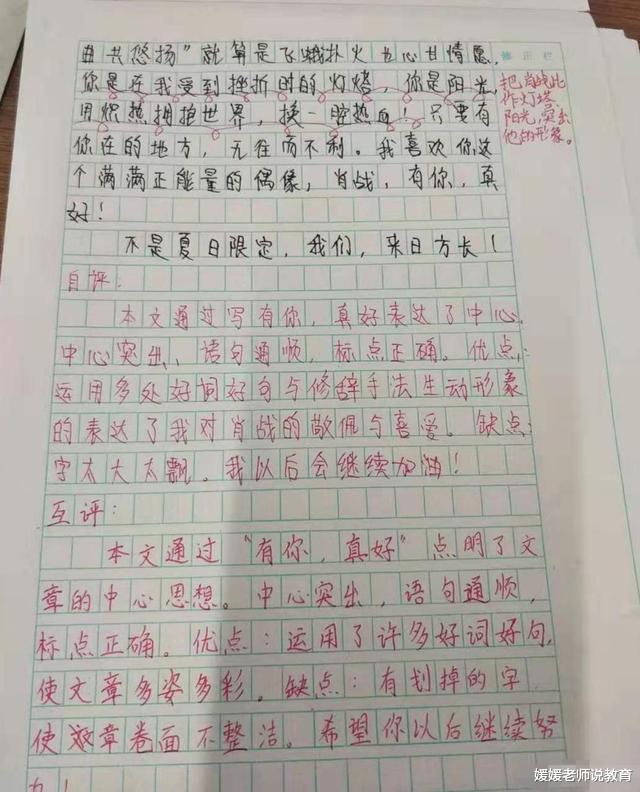 曲共悠扬"就算是飞蛾扑火也心甘情愿.
你是在我受到挫折时的灯塔，你是阳光，
用炽热拥抱世界，换一腔热血！只要有
你在的地方，无往而不利。我喜欢你这
个满满正能量的偶像，肖战，有你，真
好！
不是夏日限定，我们，来日方长！
修正栏
把肖战比
作灯塔、
阳光，突出
他的形象。
自评：
本文通过写有你，真好表达了中心.
中心突出、语句通顺，标点正确。优点：
运用多处好词好句与修辞手法生动形象
的表达了我对肖战的敬佩与喜爱。缺点：
字太大太飘。我以后会继续加油！
互评：
本文通过"有你，真好"点明了文
章的中心思想。中心突出，语句通顺，
标点正确。优点：运用了许多好词好句，
使文章多姿多彩。缺点：有划掉的字
使文章卷面不整洁。希望你以后继续努
力！
媛媛老师说教育